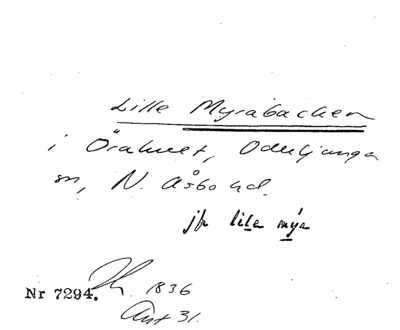 Lille Myrabacken
i Örahult, Oderljunga
sn, N. Åsbo hd.
jfr lilla mýra
Nr 7294. 1836
Akt 31.